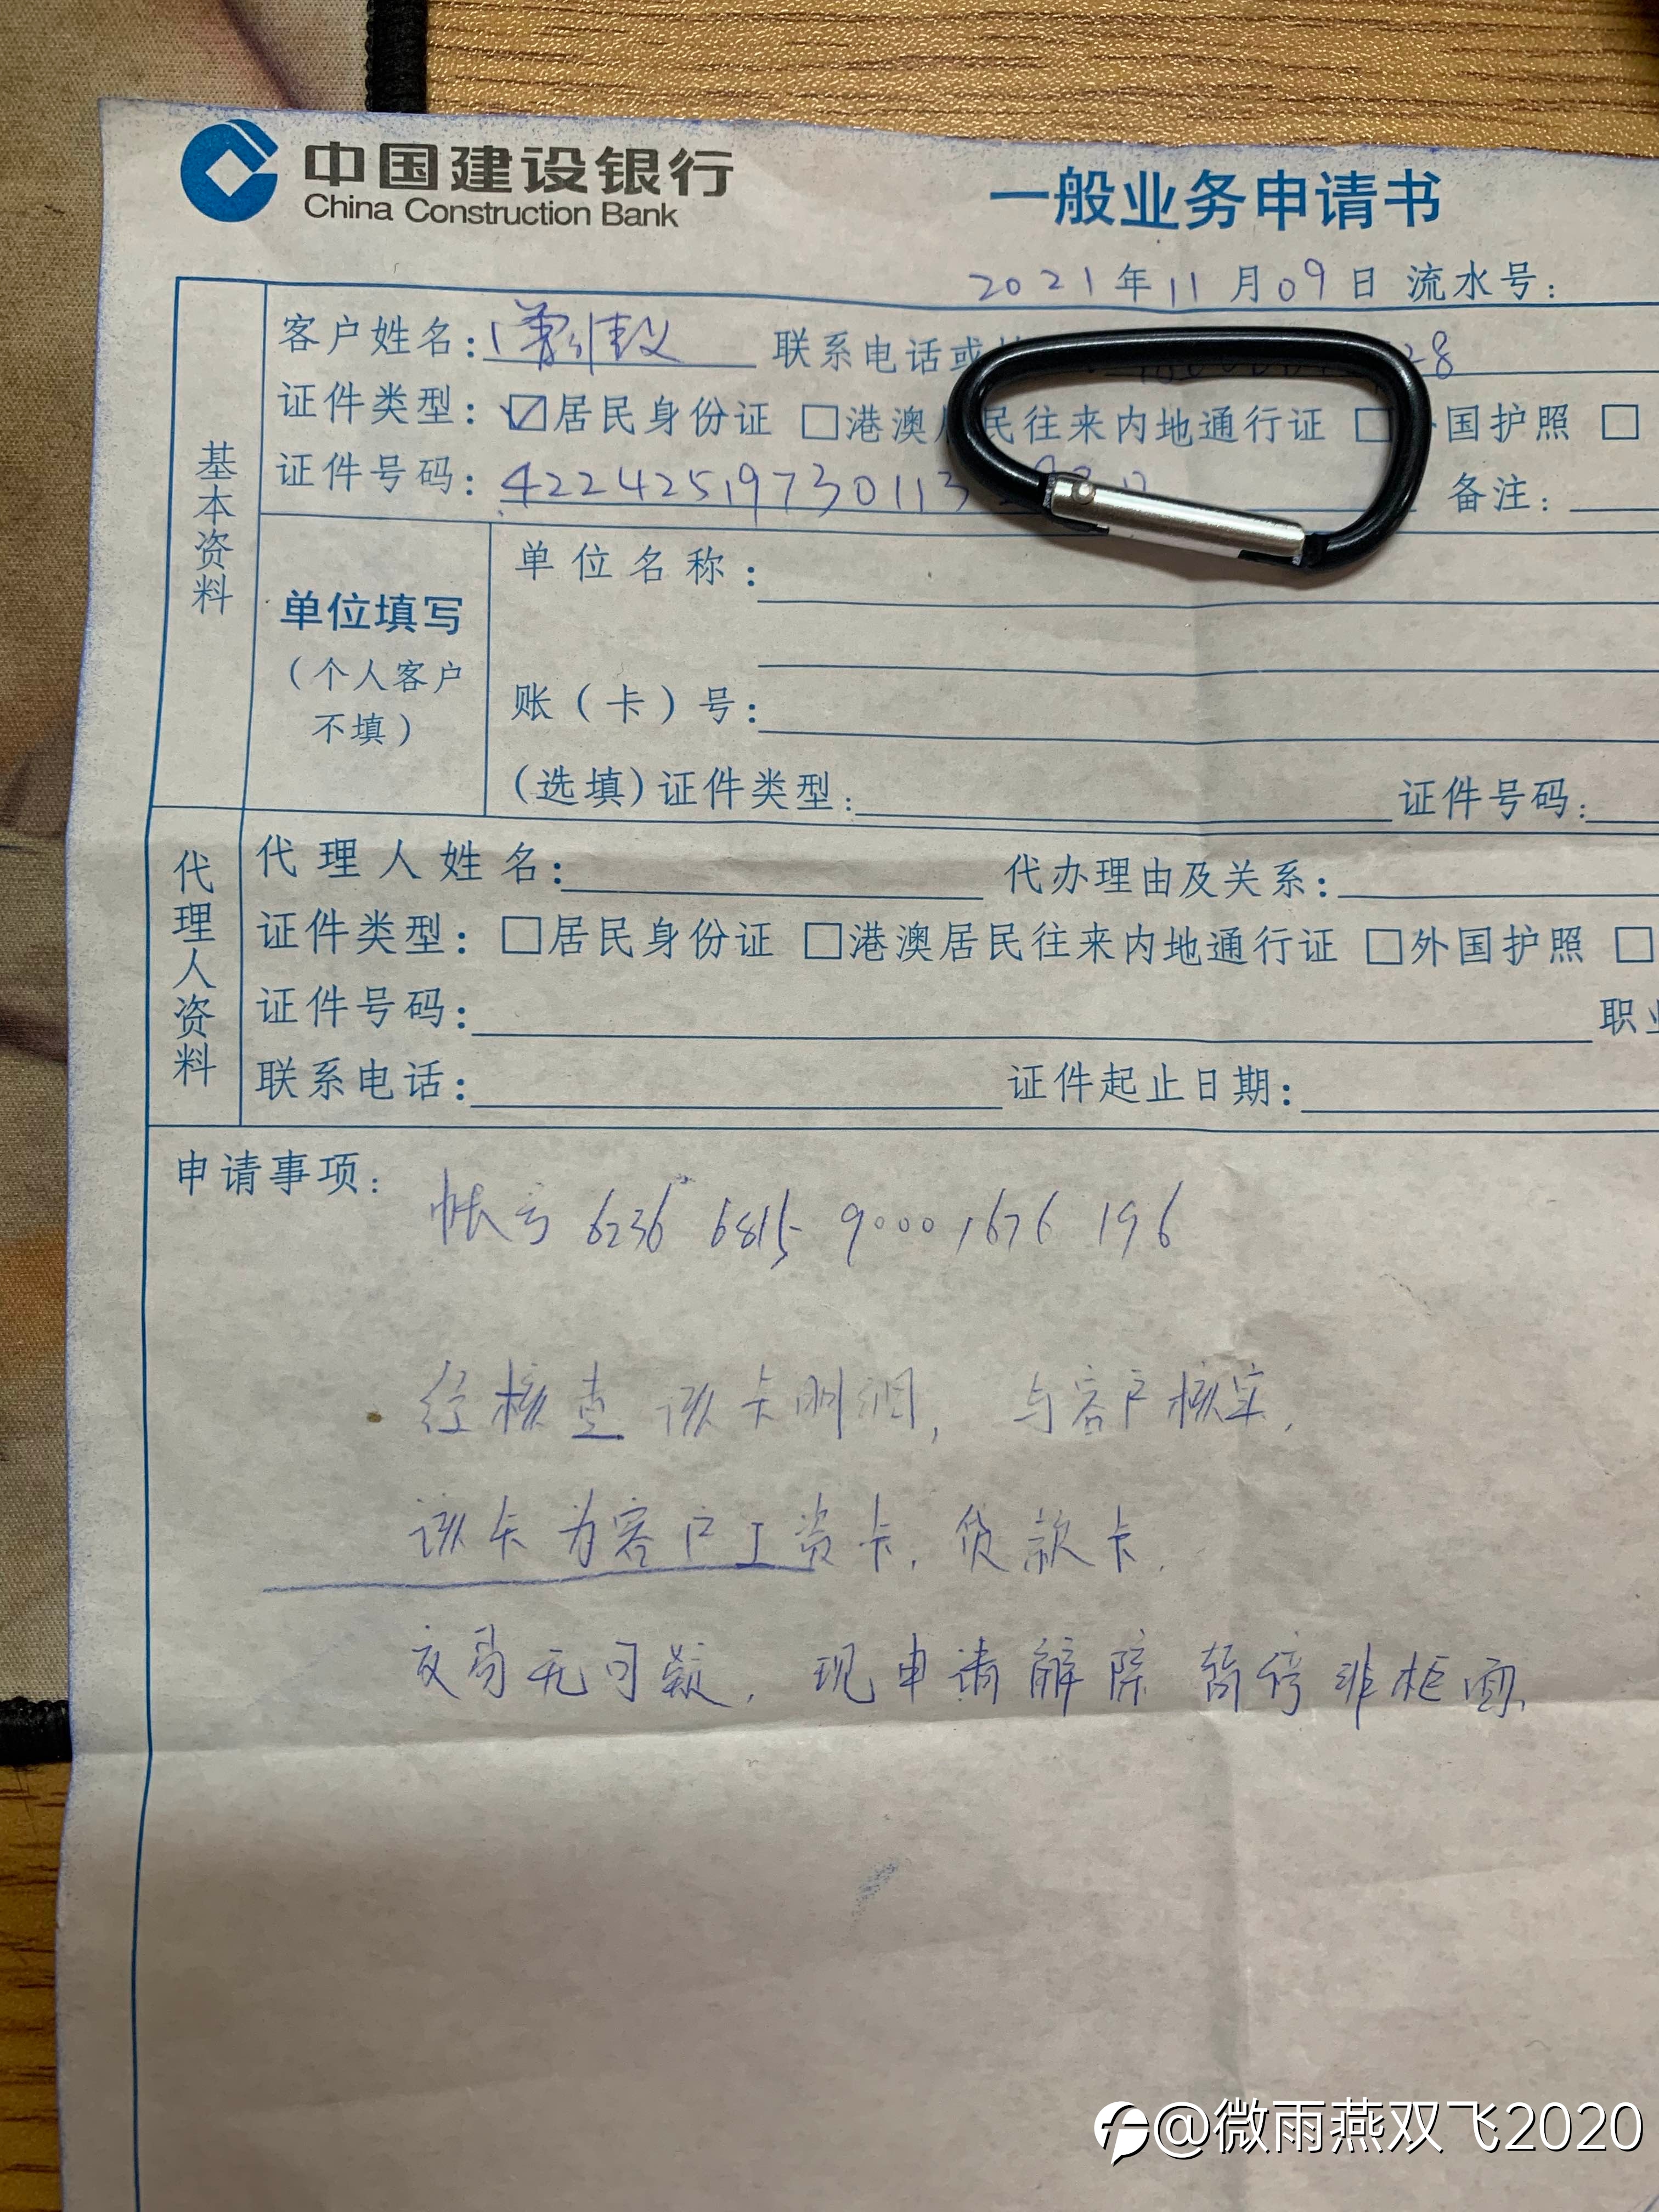 中国建设银行
China Construction Bank
一般业务申请书
2021年11月09日 流水号：
基本资料
客户姓名： 联系电话或 28
证件类型：☑居民身份证 □港澳居民往来内地通行证 □外国护照 □
证件号码：42242519730113 备注：
单位填写
（个人客户
不填）
单位名称：
账（卡）号：
(选填)证件类型： 证件号码：
代理人资料
代理人姓名： 代办理由及关系：
证件类型：□居民身份证 □港澳居民往来内地通行证 □外国护照 □
证件号码： 职业
联系电话： 证件起止日期：
申请事项：
帐号 6236 6815 9000 1676 196
经核查该卡明细，与客户核实，
该卡为客户工资卡，贷款卡，
交易无可疑，现申请解除暂停非柜面，
@微雨燕双飞2020